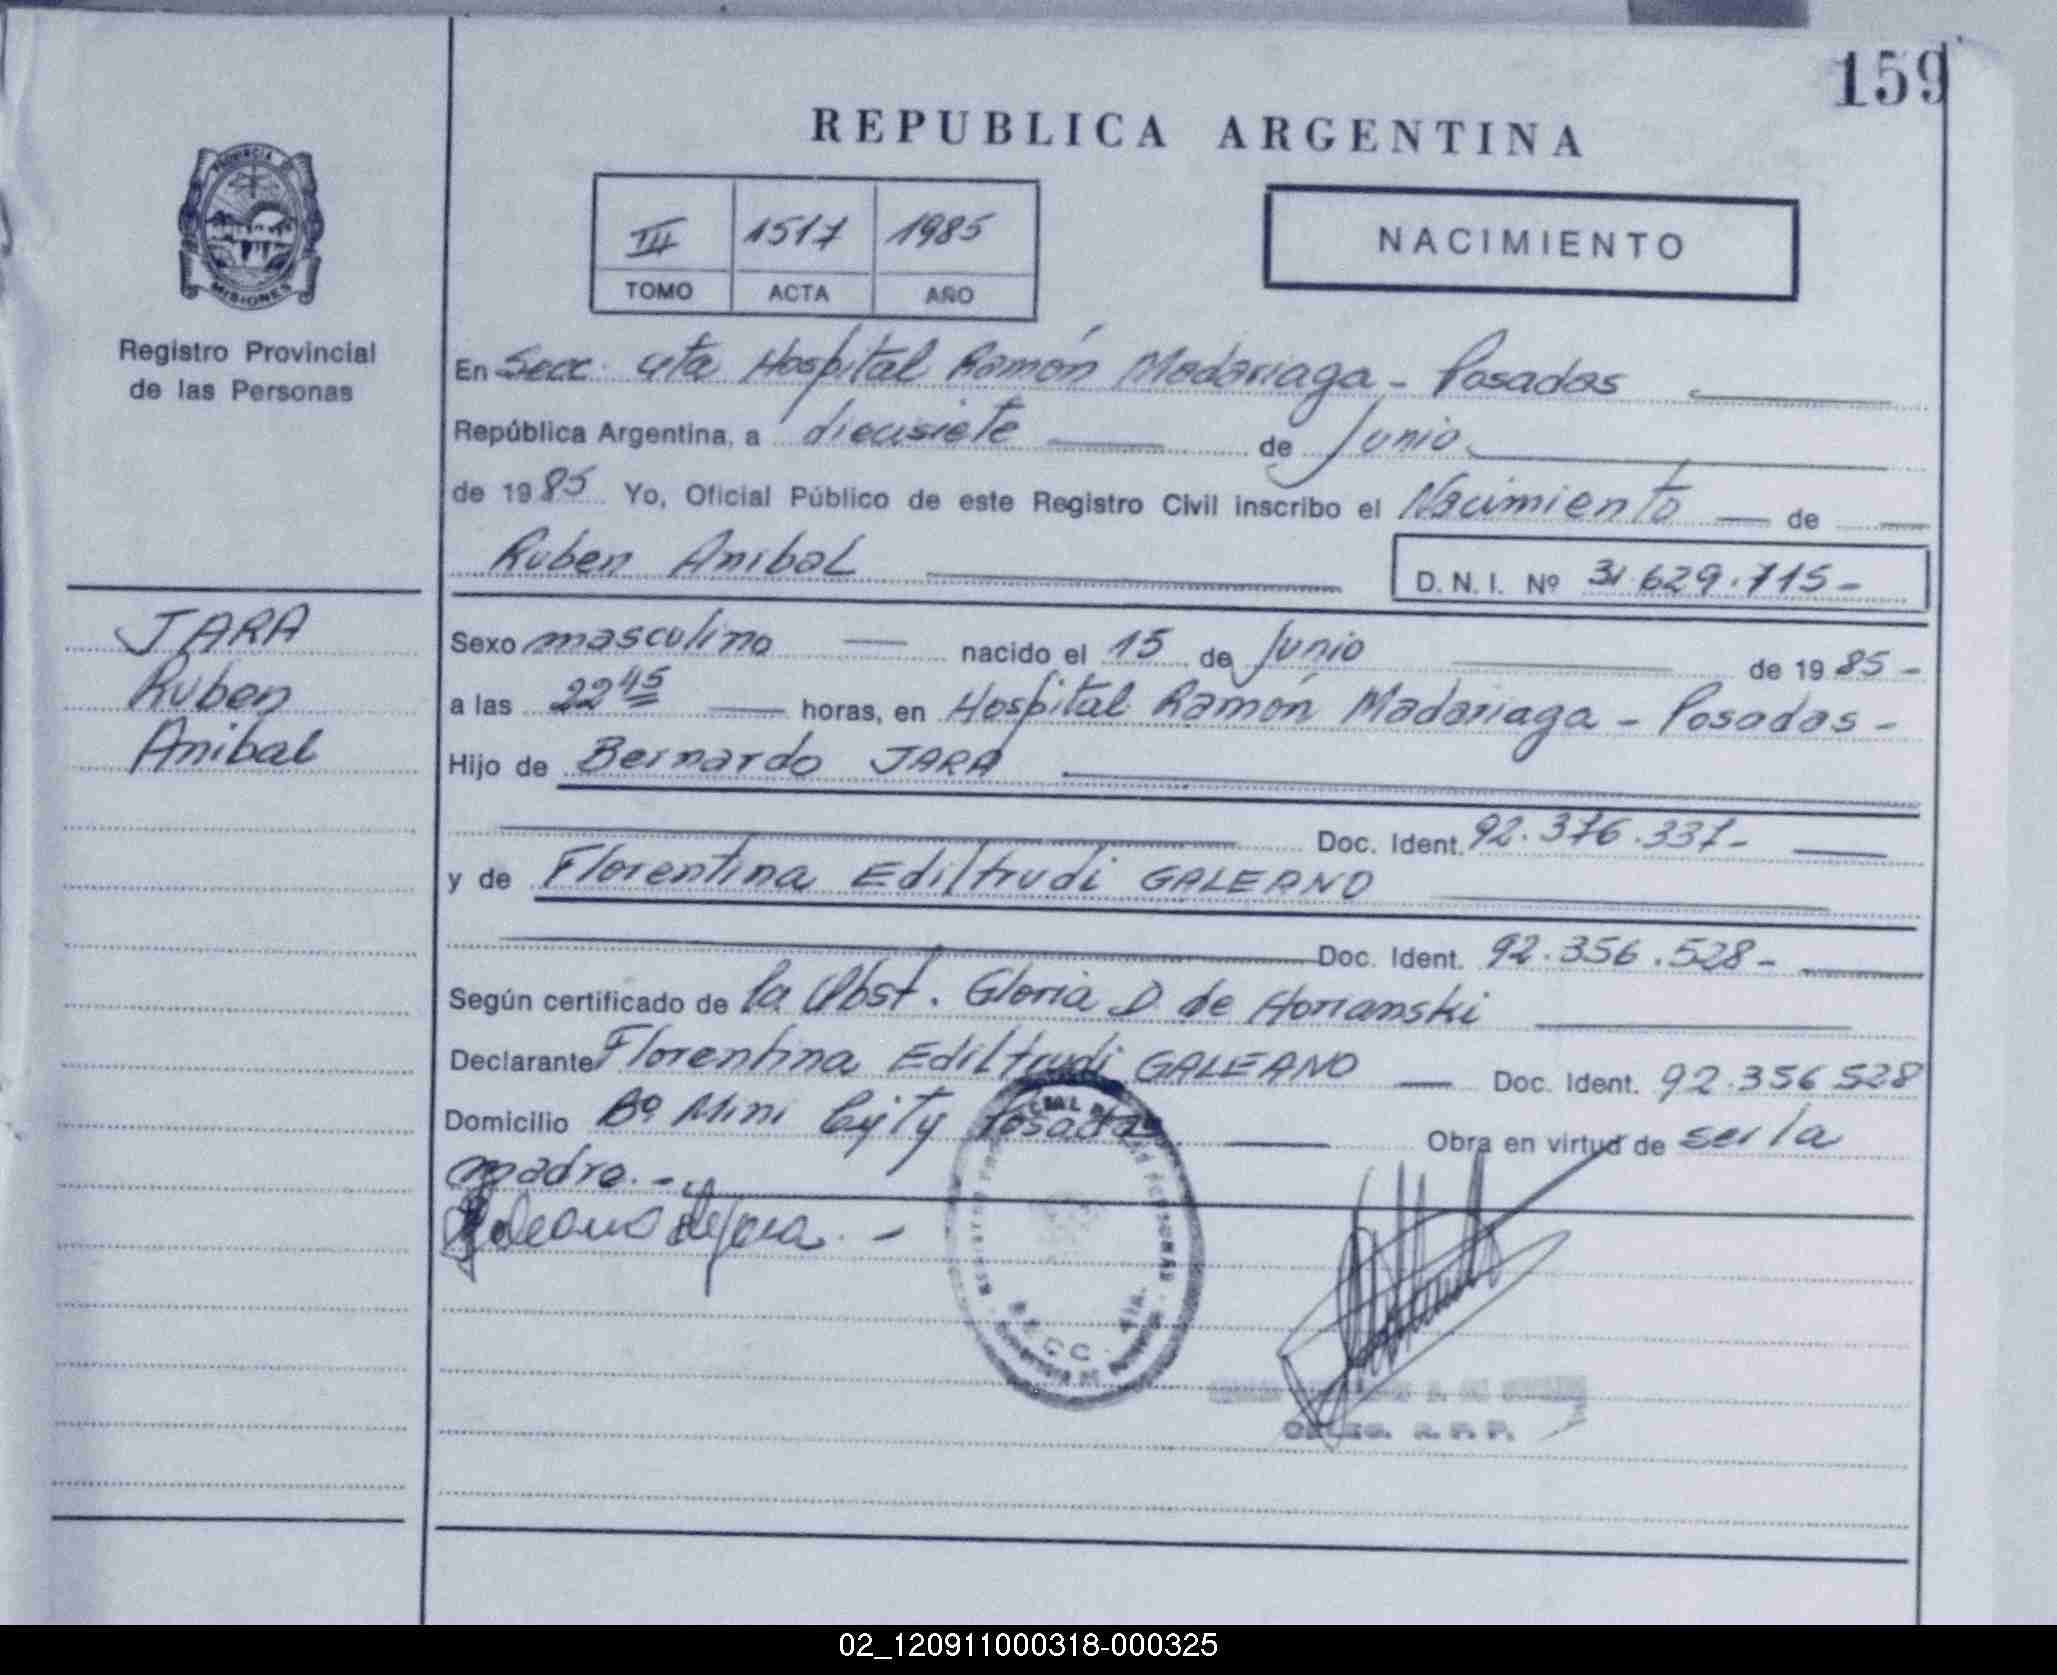 159
REPUBLICA ARGENTINA
III 1517 1985
TOMO ACTA AÑO
NACIMIENTO
PROVINCIA DE
MISIONES
Registro Provincial
de las Personas
En Secc. 4ta Hospital Ramón Madariaga - Posadas
República Argentina, a diecisiete de Junio
de 1985 Yo, Oficial Público de este Registro Civil inscribo el Nacimiento de
Ruben Anibal
D. N. I. Nº 31.629.715-
JARA
Ruben
Anibal
Sexo masculino nacido el 15 de Junio de 1985-
a las 22 45 horas, en Hospital Ramón Madariaga - Posadas -
Hijo de Bernardo JARA
Doc. Ident. 92.376.337-
y de Florentina Ediltrudi GALEANO
Doc. Ident. 92.356.528-
Según certificado de la Obst. Gloria D de Horianski
Declarante Florentina Ediltrudi GALEANO Doc. Ident. 92.356.528
Domicilio Bº Mini Cyty Posadas Obra en virtud de ser la
madre.-
Galeano de Jara.-
R. P. P.
02_120911000318-000325